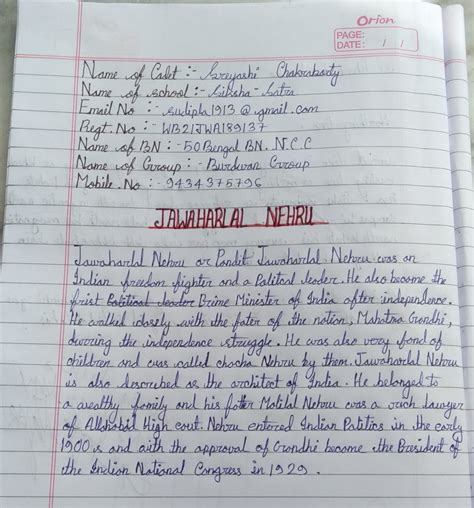 Orion
PAGE:
DATE: / /
Name of Cadet :- Sreyashi Chakraborty
Name of school :- Siksha-Satra
Email No :- sudipla1913@gmail.com
Regt. No :- WB21JWA189137
Name of BN :- 50 Bengal BN. N.C.C
Name of Group :- Burdwan Group
Mobile No :- 9434375796
JAWAHARLAL NEHRU
Jawaharlal Nehru or Pandit Jawaharlal Nehru was an
Indian freedom fighter and a Politcal leader. He also become the
frist Political leader Prime Minister of India after independence.
He walked closely with the fater of the nation, Mahatma Gandhi,
durring the independence struggle. He was also very fond of
children and was called chacha Nehru by them. Jawaharlal Nehru
is also described as the architect of India. He belonged to
a wealthy family and his father Motilal Nehru was a rich lawyer
of Allahabad High cout. Nehru entered Indian Politics in the early
1900s and with the approval of Gandhi become the President of
the Indian National Congress in 1929.